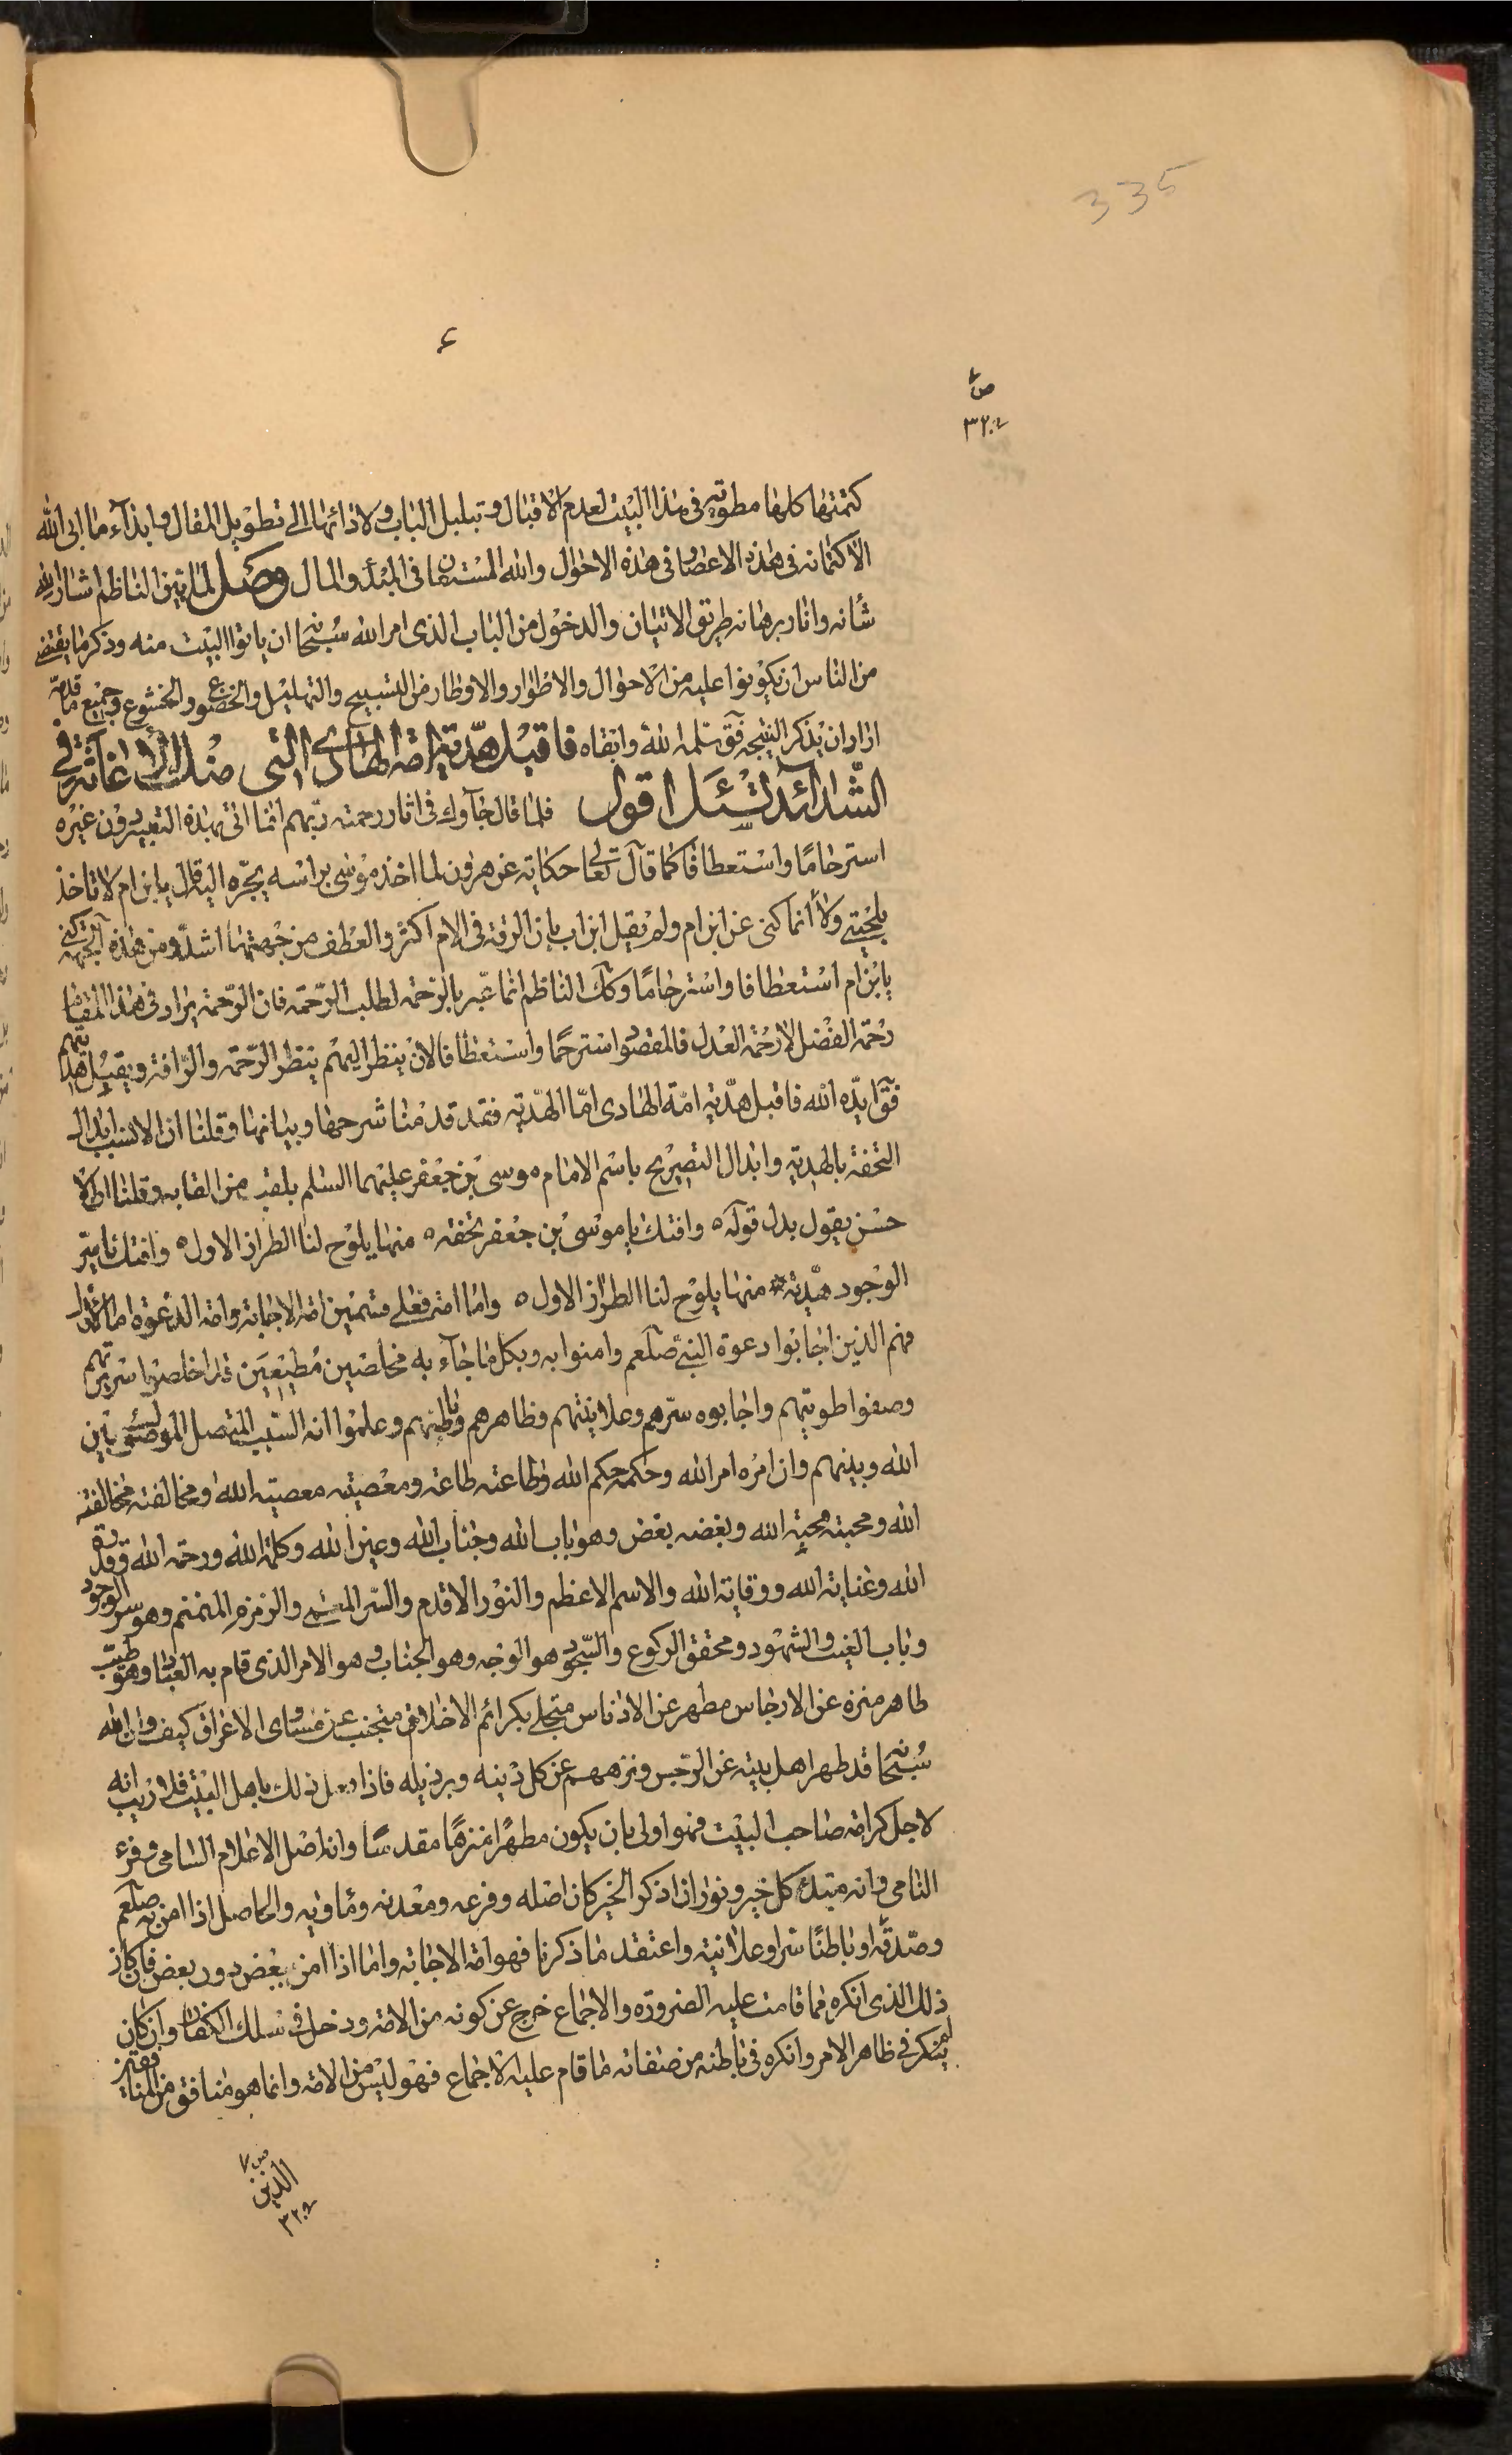 335
ع
ص
٣٢٠
كتمتها كلها مطوية فى هذا البيت لعدم الاقبال و تبلبل البال ولادائها الى تطويل المقال وابداء ما ابى الله
الا كتمانه فى هذه الاعصار فى هذه الاحوال والله المستعان فى المبدأ والمال وصل لما بين الناظم اشار الله
شأنه وانار برهانه طريق الاتيان والدخول من الباب الذى امر الله سبحانه ان ياتوا البيت منه وذكر ما يقتضى
من الناس ان يكونوا عليه من الاحوال والاطوار والاوطار من التسبيح والتهليل والخضوع والخشوع وجميع ما قدمه
اراد ان يذكر النتيجة فق سلمه الله وابقاه فاقبل هدية امة الهادى التى منك الاغاثة فى
الشدائد تسئل اقول فلما قال جآؤك فى اثار رحمة ربهم انما اتى بهذه التعبير دون غيره
استرحاما واستعطافا كما قال تعالى حكاية عن هرون لما اخذ موسى براسه يجره اليه قال يا بن ام لا تاخذ
بلحيتى ولا انما كنى عن ابن ام ولم يقل ابن اب بان الرقة فى الام اكثر والعطف من جهتها اشد ومن هذه الجهة كنى
يابن ام استعطافا واسترحاما وكك الناظم انما عبر بالرحمة لطلب الرحمة فان الرحمة يراد فى هذا المقام
رحمة الفضل لا رحمة العدل فالمقصود استرحما واستعطافا لان ينظر اليهم بنظر الرحمة والرافة ويقبل هديتهم
فق ايده الله فاقبل هدية امة الهادى اما الهدية فقد قدمنا شرحها وبيانها وقلنا ان الانسب ابدال
التحفة بالهدية وابدال التصريح باسم الامام موسى بن جعفر عليهما السلم بلقب من القابه وقلنا ان الاحسن
حسن يقول بدل قوله ٥ وافتك يا موسى بن جعفر تحفة ٥ منها يلوح لنا الطراز الاول ٥ وافتك يا سر
الوجود هدية * منها يلوح لنا الطراز الاول ٥ واما امة فعلى قسمين امة الاجابة وامة الدعوة اما الاول
فهم الذين اجابوا دعوة النبى صلعم وامنوا به وبكل ما جآء به مخلصين مطيعين قد اخلصوا سريرتهم
وصفوا طويتهم واجابوه سرهم وعلانيتهم وظاهرهم وباطنهم وعلموا انه السبب المتصل الموصول بين
الله وبينهم وان امره امر الله وحكمه حكم الله وطاعته طاعة ومعصيته معصية الله ومخالفته مخالفة
الله ومحبته محبة الله وبغضه بغض وهو باب الله وجناب الله وعين الله وكلمة الله ورحمة الله وقدرة
الله وعناية الله ووقاية الله والاسم الاعظم والنور الاقدم والسر المعمى والرمز المنمنم وهو سر الوجود
وباب الغيب والشهود ومحقق الركوع والسجود هو الوجه وهو الجناب وهو الامر الذى قام به العباد وهو طيب
طاهر منزه عن الارجاس مطهر عن الادناس متجلى بكرائم الاخلاق متجنب عن مساوى الاعراق كيف وان الله
سبحانه قد طهر اهل بيته عن الرجس ونزههم عن كل دنيه ورذيله فاذا فعل ذلك باهل البيت فلا ريب انه
لاجل كرامة صاحب البيت فهو اولى بان يكون مطهرا منزها مقدسا وانه اصل الاعلام السامى وفرع
النامى وانه مبتدء كل خير ونور ان ذكر الخير كان اصله وفرعه ومعدنه ومأويه والحاصل اذا امن به صلعم
وصدقه باطنا سرا وعلانية واعتقد ما ذكرنا فهو امة الاجابة واما اذا امن ببعض دون بعض فان كان
ذلك الذى انكره مما قامت عليه الضرورة والاجماع خرج عن كونه من الامة ودخل فى سلك الكفار وان كان
لم ينكر فى ظاهر الامر وانكره فى باطنه من صفاته ما قام عليه الاجماع فهو ليس من الامة وانما هو منافق من المنافقين
ص ٧
الذين
٣٢٠